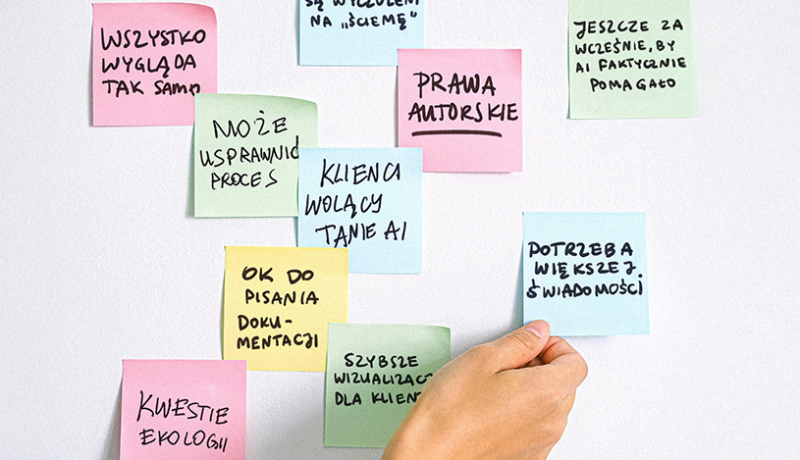 WSZYSTKO
WYGLĄDA
TAK SAMO
SĄ WYCZULENI
NA „ŚCIEMĘ”
JESZCZE ZA
WCZEŚNIE, BY
AI FAKTYCZNIE
POMAGAŁO
PRAWA
AUTORSKIE
MOŻE
USPRAWNIĆ
PROCES
KLIENCI
WOLĄCY
TANIE AI
POTRZEBA
WIĘKSZEJ
ŚWIADOMOŚCI
OK DO
PISANIA
DOKU-
MENTACJI
SZYBSZE
DLA
KWESTIE
EKOLOGII